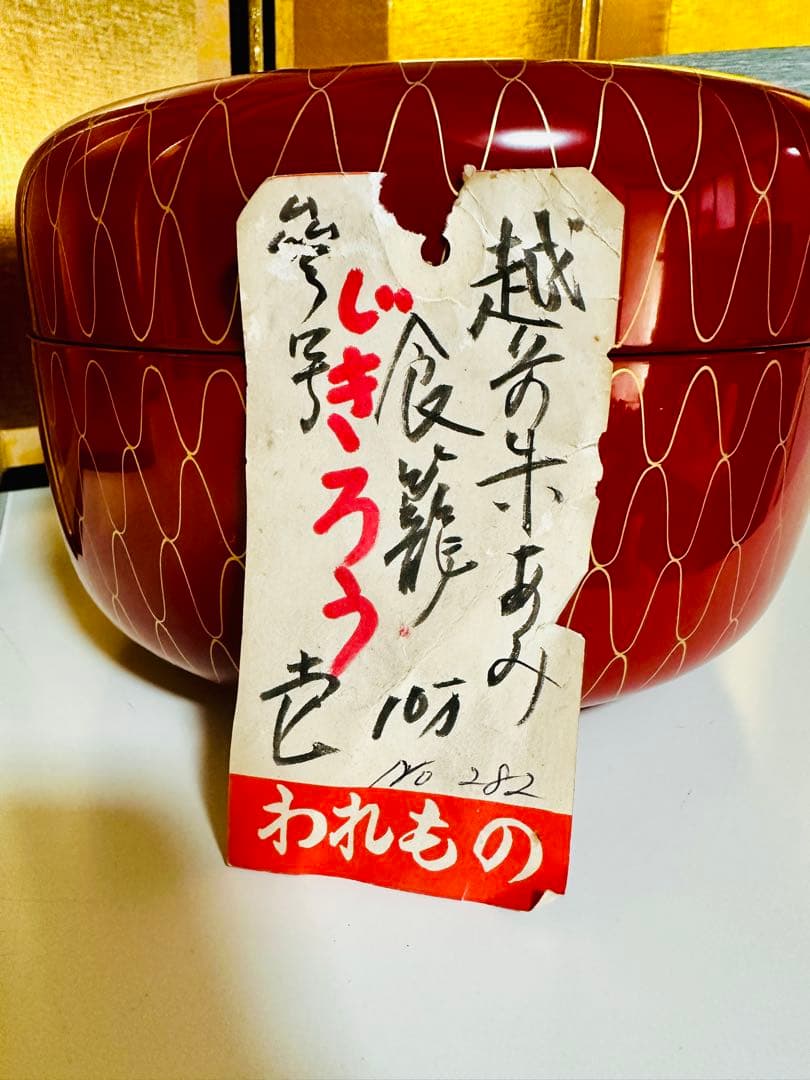 越前朱あみ
食籠
じきろう
号
壱
10万
No 282
われもの